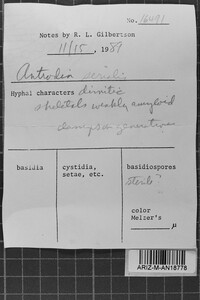 No. 16491
Notes by R. L. Gilbertson
11/15, 1989
Antrodia serialis
Hyphal characters dimitic
skeletals weakly amyloid
basidia
cystidia,
setae, etc.
basidiospores
sterile?
color
Melzer's
µ
ARIZ-M-AN18778